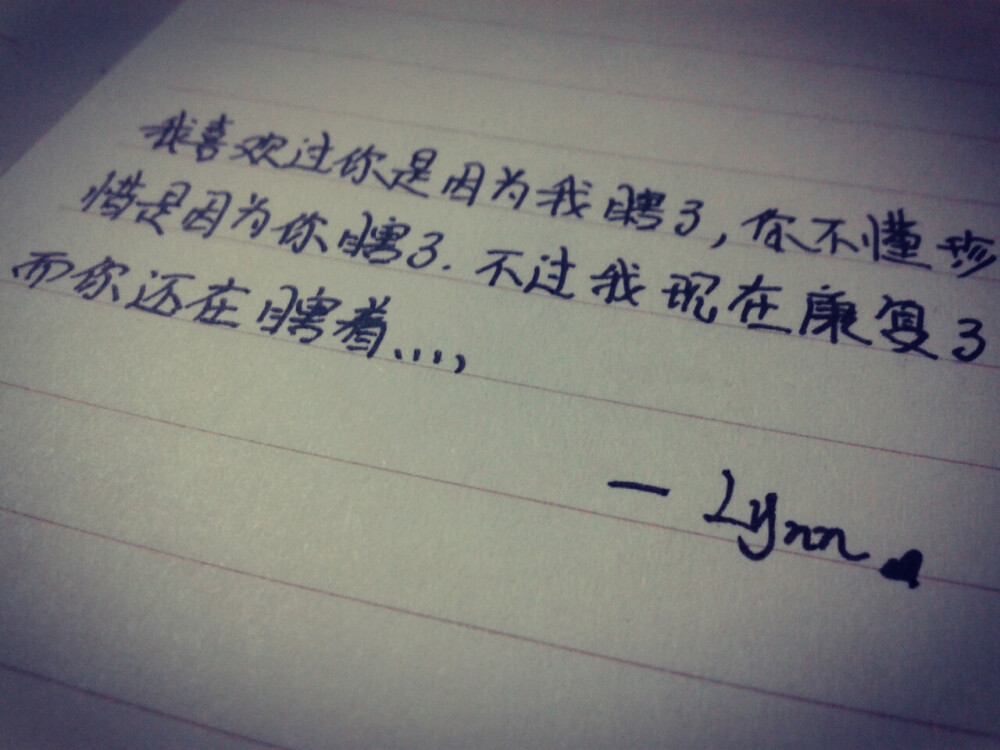 我喜欢过你是因为我瞎了,你不懂珍
惜是因为你瞎了.不过我现在康复了
而你还在瞎着...,
— Lynn